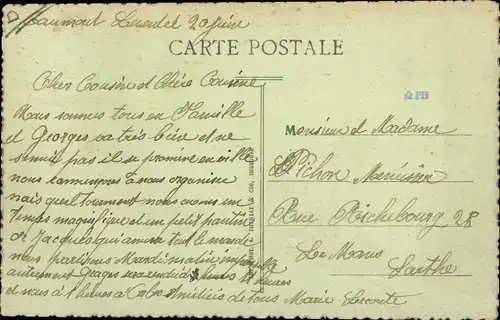 Beaumont 20 Juin
CARTE POSTALE
Cher Cousin et Chère Cousine
PB
Nous sommes tous en Famille
et Georges va très bien et ne
Monsieur et Madame
pas il se promène en ville
Pichon Menuisier
nous commençons à nous organiser
mais quel tourment nous avons un
Rue Richebourg 28
Temps magnifique et un petit
de Jacques qui amuse tout le monde
Le Mans
nous partirons Mardi matin
Sarthe
autrement Georges heures
et nous à 1 heures à amitiés de tous Marie Leconte